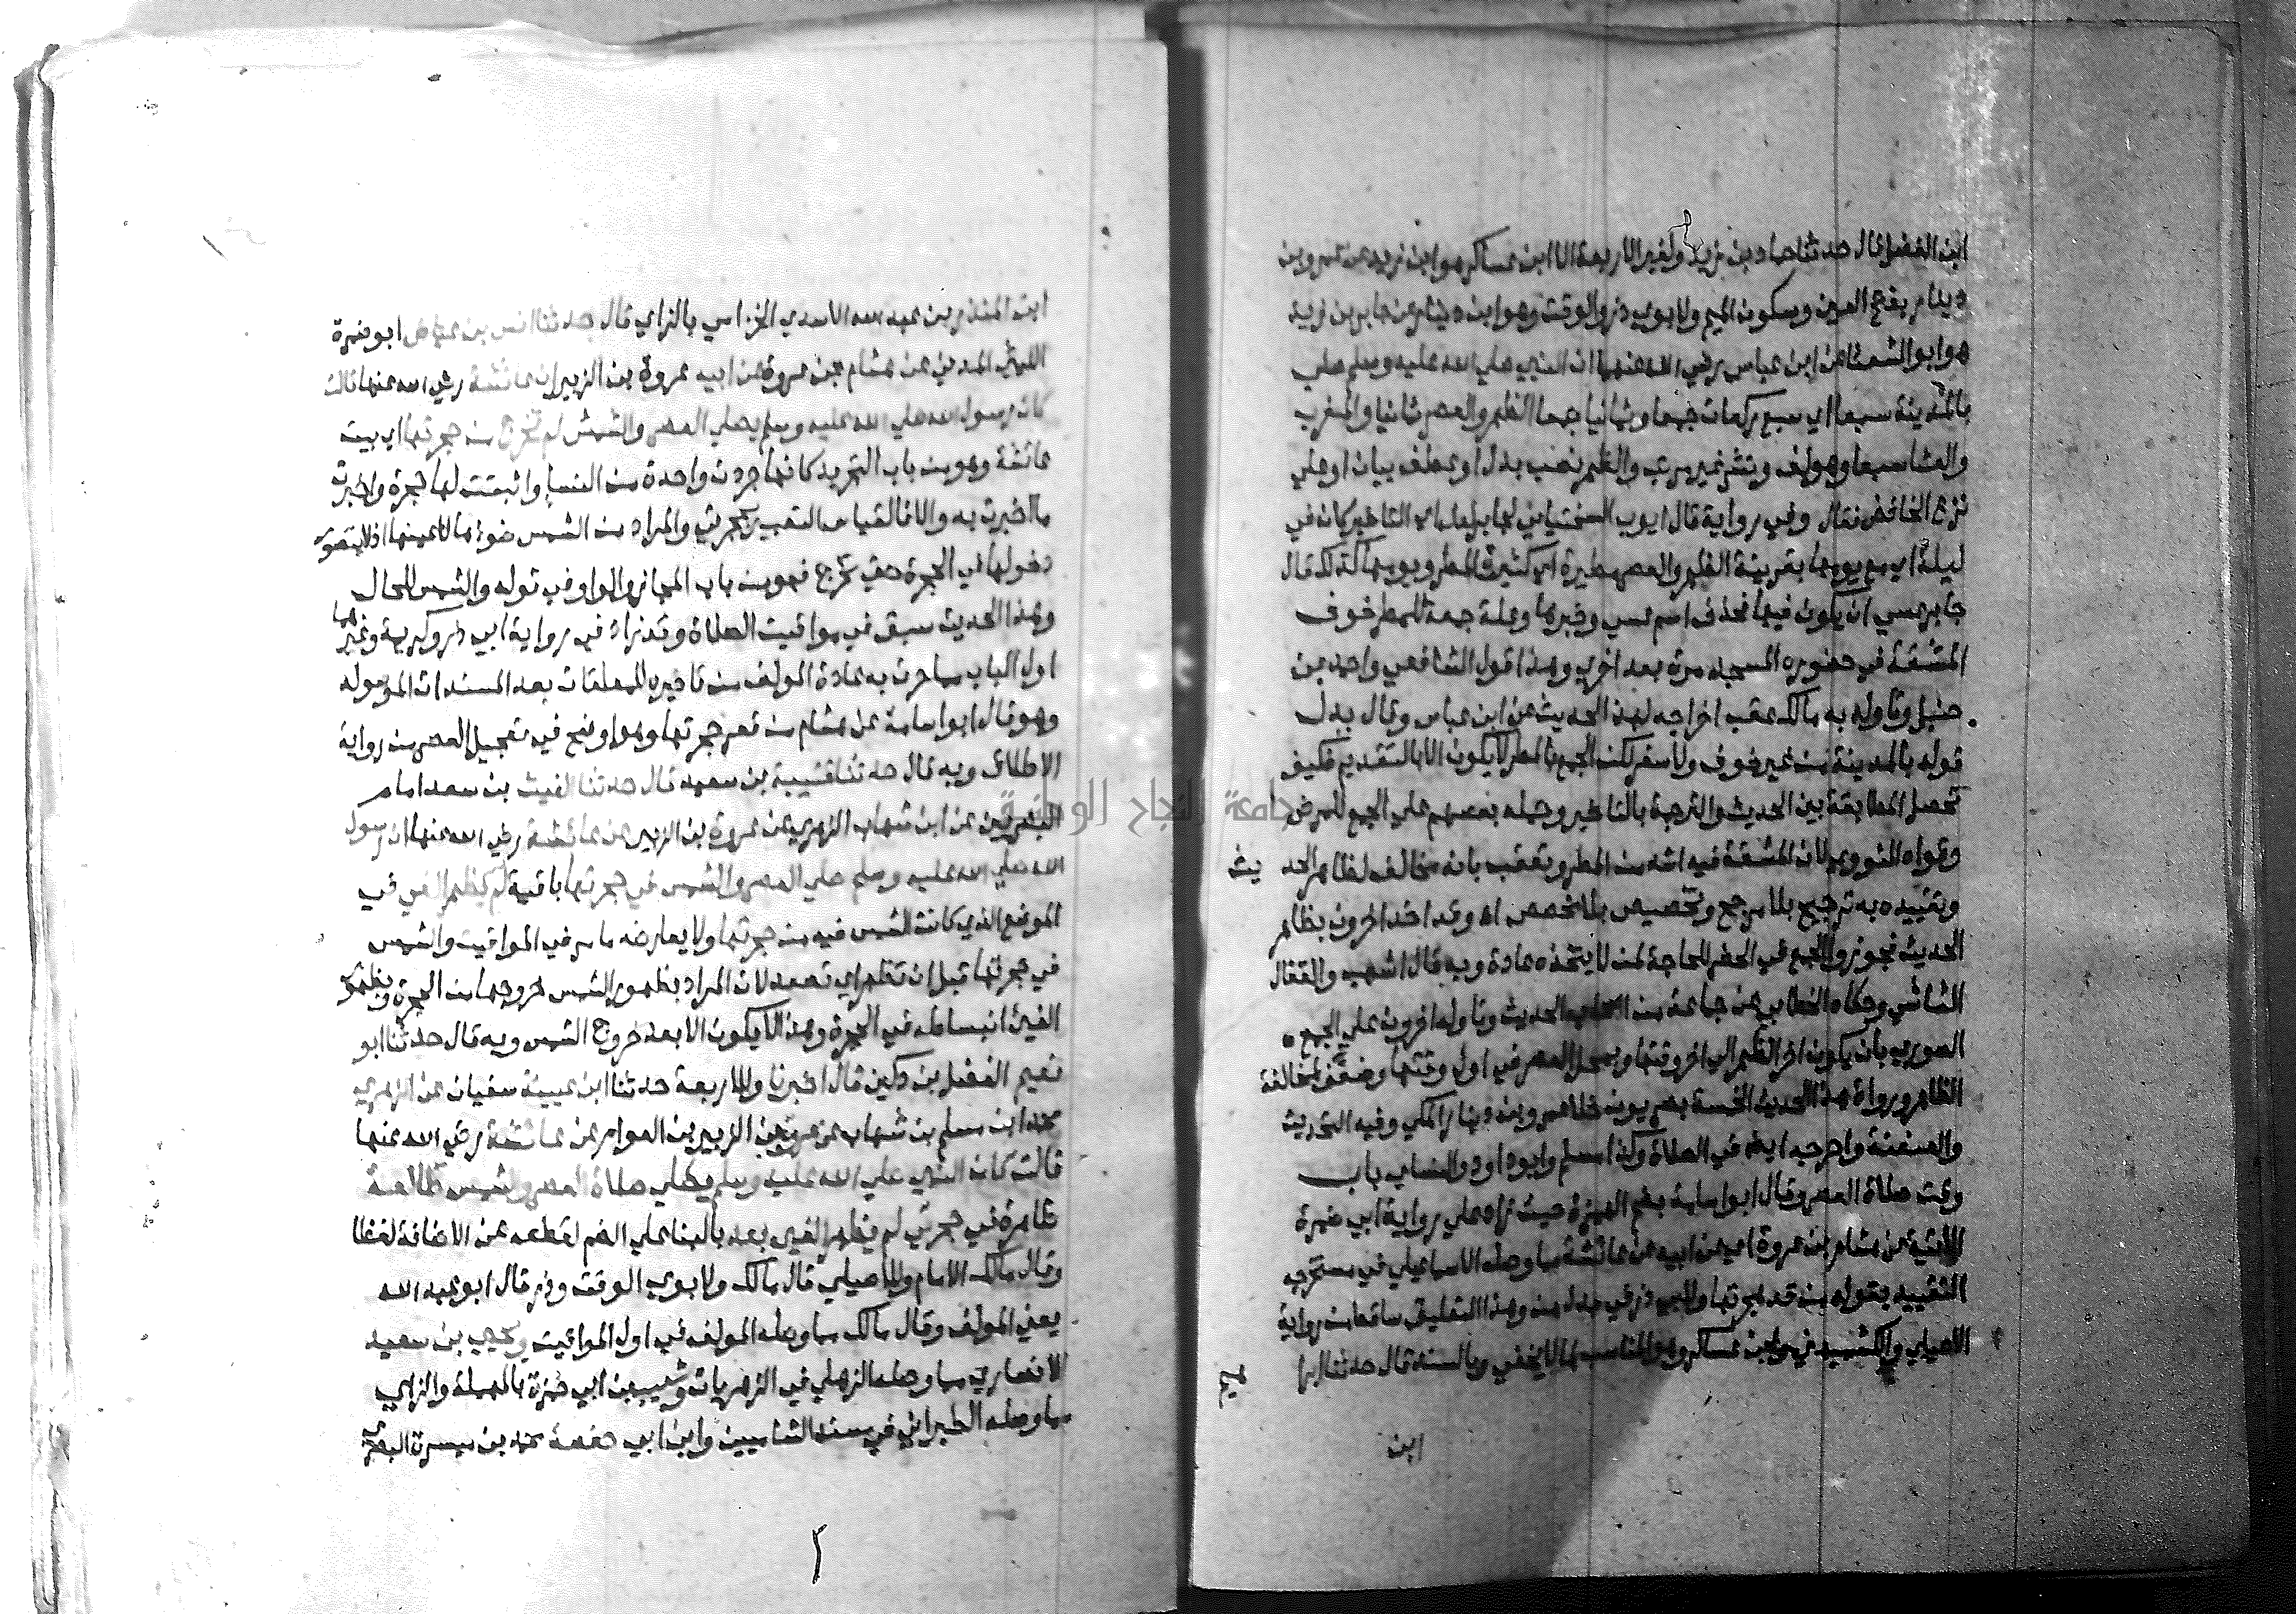 ابن الفضل قال حدثنا حماد بن زيد ولغير الاربعة الا ابن عساكر هو ابن زيد عن عمرو بن
دينار بفتح العين وسكون الميم ولابوي ذر والوقت وهو ابن دينار عن جابر بن زيد
هو ابو الشعثا عن ابن عباس رضي الله عنهما ان النبي صلي الله عليه وسلم صلي
بالمدينة سبعا اي سبع ركعات جمعا وثمانيا جمعا الظهر والعصر ثمانيا والمغرب
والعشا سبعا وهو لف ونشر غير مرتب والظهر نصب بدل او عطف بيان او علي
نزع الخافض فقال وفي رواية قال ايوب السختياني لجابر لعله اي التاخير كان في
ليلة اي مع يومها بقرينة الظهر والعصر مطيرة اي كثيرة المطر ويومها كذلك قال
جابر عسي ان يكون فيها فحذف اسم عسي وخبرها وعلة جمعه للمطر خوف
المشقة في حضوره المسجد مرة بعد اخري وهذا قول الشافعي واحمد بن
حنبل وتاوله به مالك عقب اخراجه لهذا الحديث عن ابن عباس وقال بدل
قوله بالمدينة من غير خوف ولا سفر لكن الجمع بالمطر لا يكون الا بالتقديم فكيف
تحصل المطابقة بين الحديث والترجمة بالتاخير وحمله بعضهم علي الجمع للمرض
وقواه النووي لان المشقة فيه اشد من المطر وتعقب بانه مخالف لظاهر الحديث
وتقييده به ترجيح بلا مرجح وتخصيص بلا مخصص اه وقد اخذ اخرون بظاهر
الحديث فجوزوا الجمع في الحضر للحاجة لمن لا يتخذه عادة وبه قال اشهب والقفال
الشاشي وحكاه الخطابي عن جماعة من اصحاب الحديث وتاوله اخرون علي الجمع
الصوري بان يكون اخر الظهر الي اخر وقتها وعجل العصر في اول وقتها وضعف لمخالفة
الظاهر ورواة هذا الحديث الخمسة بصريون خلا عمرو بن دينار المكي وفيه التحديث
والعنعنة واخرجه ايضا في الصلاة وكذا مسلم وابو داود والنساي باب
وقت صلاة العصر وقال ابو اسامة بضم الهمزة حيث زاد علي رواية ابي ضمرة
الآتية عن هشام بن عروة اي عن ابيه عن عائشة مما وصله الاسماعيلي في مستخرجه
التقييد بقوله من قعر حجرتها ولابي ذر في بدل من وهذا التعليق ساقط من رواية
الاصيلي والكشميهني وابن عساكر وهو المناسب لما لا يخفي وبالسند قال حدثنا ابراهيم
ابن
ابن المنذر بن عبد الله الاسدي الحزامي بالزاي قال حدثنا انس بن عياض ابو ضمرة
الليثي المدني عن هشام عن عروة عن ابيه عروة بن الزبير ان عائشة رضي الله عنها قالت
كان رسول الله صلي الله عليه وسلم يصلي العصر والشمس لم تخرج من حجرتها اي بيت
عائشة وهو من باب التجريد كانها جردت واحدة من النسا واثبتت لها حجرة واخبرت
بما اخبرت به والا فالقياس التعبير بحجرتي والمراد من الشمس ضوءها لا عينها اذ لا يتصور
دخولها في الحجرة حتي تخرج فهو من باب المجاز والواو في قوله والشمس للحال
وهذا الحديث سبق في مواقيت الصلاة وقد زاد في رواية ابي ذر وكريمة وغيرهما
اول الباب مما جرت به عادة المولف من تاخيره للمعلقات بعد المسندات الموصوله
وهو قال ابو اسامة عن هشام من قعر حجرتها وهو اوضح في تعجيل العصر من رواية
الاطلاق وبه قال حدثنا قتيبة بن سعيد قال حدثنا الليث بن سعد امام
المصريين عن ابن شهاب الزهري عن عروة بن الزبير عن عائشة رضي الله عنها ان رسول
الله صلي الله عليه وسلم صلي العصر والشمس في حجرتها باقية لم يظهر الفي في
الموضع الذي كانت الشمس فيه من حجرتها ولا يعارضه ما مر في المواقيت والشمس
في حجرتها قبل ان تظهر اي تصعد لان المراد بظهور الشمس خروجها من الحجرة وبظهور
الفيئ انبساطه في الحجرة وهذا لا يكون الا بعد خروج الشمس وبه قال حدثنا ابو
نعيم الفضل بن دكين قال اخبرنا وللاربعة حدثنا ابن عيينة سفيان عن الزهري
محمد ابن مسلم بن شهاب عن عروة بن الزبير بن العوام عن عائشة رضي الله عنها
قالت كان النبي صلي الله عليه وسلم يصلي صلاة العصر والشمس طالعة
ظاهرة في حجرتي لم يظهر الفيئ بعد بالبنا علي الضم لقطعه عن الاضافة لفظا
وقال مالك الامام وللاصيلي قال مالك ولابوي الوقت وذر قال ابو عبد الله
يعني المولف وقال مالك مما وصله المولف في اول المواقيت ويحيي بن سعيد
الانصاري مما وصله الذهلي في الزهريات وشعيب بن ابي حمزة بالمهملة والزاي
مما وصله الطبراني في مسند الشاميين وابن ابي حفصة محمد بن ميسرة البصري
جامعة النجاح الوطنية